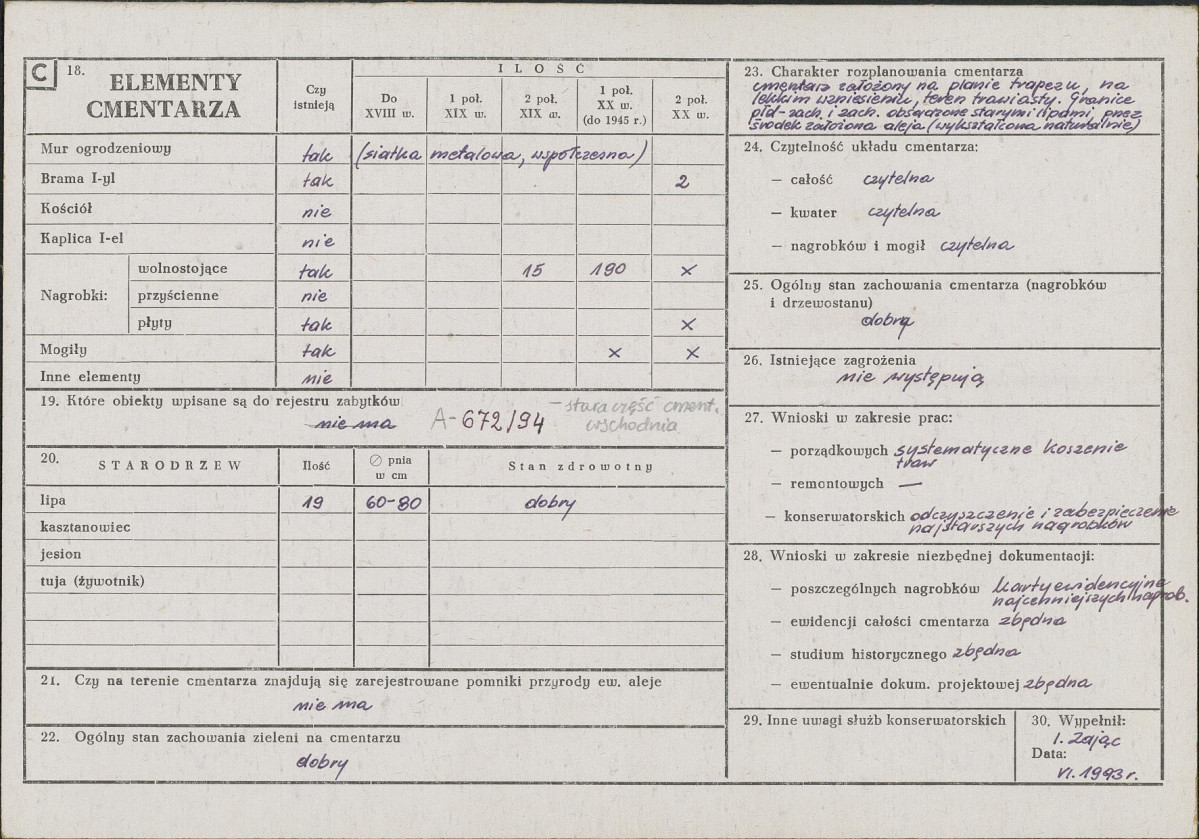 C 18. ELEMENTY CMENTARZA
Czy istnieją
ILOŚĆ
Do XVIII w.
1 poł. XIX w.
2 poł. XIX w.
1 poł. XX w. (do 1945 r.)
2 poł. XX w.
Mur ogrodzeniowy tak (siatka metalowa, współczesna)
Brama I-yl tak 2
Kościół nie
Kaplica I-el nie
Nagrobki:
wolnostojące tak 15 190 x
przyścienne nie
płyty tak x
Mogiły tak x x
Inne elementy nie
19. Które obiekty wpisane są do rejestru zabytków
nie ma A-672/94 - stara część cment.
wschodnia
20. STARODRZEW Ilość ∅ pnia w cm Stan zdrowotny
lipa 19 60-80 dobry
kasztanowiec
jesion
tuja (żywotnik)
21. Czy na terenie cmentarza znajdują się zarejestrowane pomniki przyrody ew. aleje
nie ma
22. Ogólny stan zachowania zieleni na cmentarzu
dobry
23. Charakter rozplanowania cmentarza
cmentarz założony na planie trapezu, na
lekkim wzniesieniu, teren trawiasty. Granice
płd-zach. i zach. obsadzone starymi lipami, przez
środek założona aleja (wykształcona naturalnie)
24. Czytelność układu cmentarza:
— całość czytelna
— kwater czytelna
— nagrobków i mogił czytelna
25. Ogólny stan zachowania cmentarza (nagrobków
i drzewostanu)
dobry
26. Istniejące zagrożenia
nie występują
27. Wnioski w zakresie prac:
— porządkowych systematyczne koszenie
traw
— remontowych —
— konserwatorskich odczyszczenie i zabezpieczenie
najstarszych nagrobków
28. Wnioski w zakresie niezbędnej dokumentacji:
— poszczególnych nagrobków karty ewidencyjne
najcenniejszych nagrob.
— ewidencji całości cmentarza zbędna
— studium historycznego zbędna
— ewentualnie dokum. projektowej zbędna
29. Inne uwagi służb konserwatorskich
30. Wypełnił:
I. Zając
Data:
VI. 1993 r.